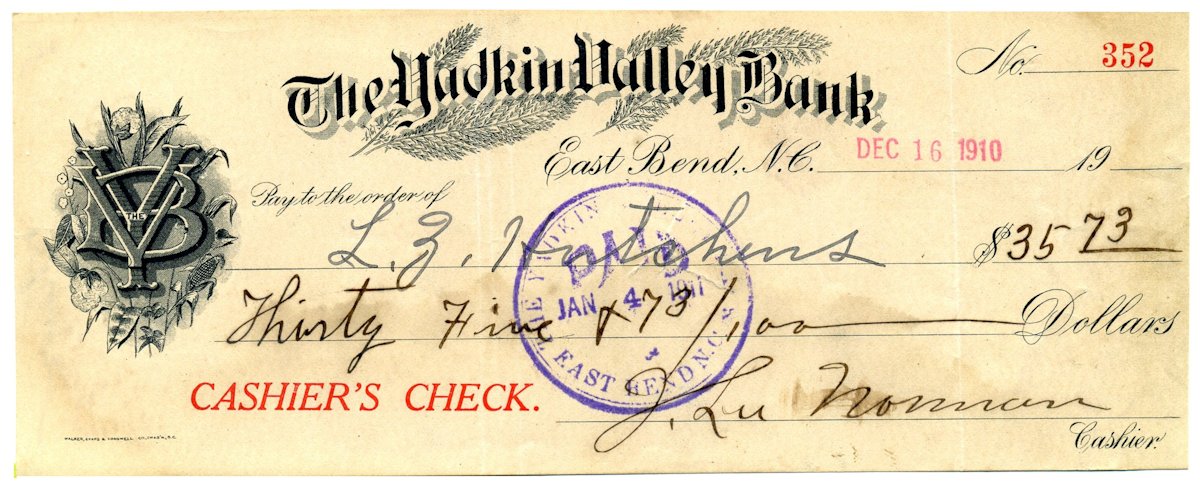 The Yadkin Valley Bank
No. 352
East Bend, N.C. DEC 16 1910 19
Pay to the order of
L. Z. Hutchens $35 73
THE
YVB
Thirty Five & 73/100 Dollars
THE YADKIN VALLEY BANK
PAID
JAN 4 1911
EAST BEND N.C.
CASHIER'S CHECK.
J. Lee Norman
Cashier.
WALKER, EVANS & COGSWELL CO., CHAS'N, S.C.